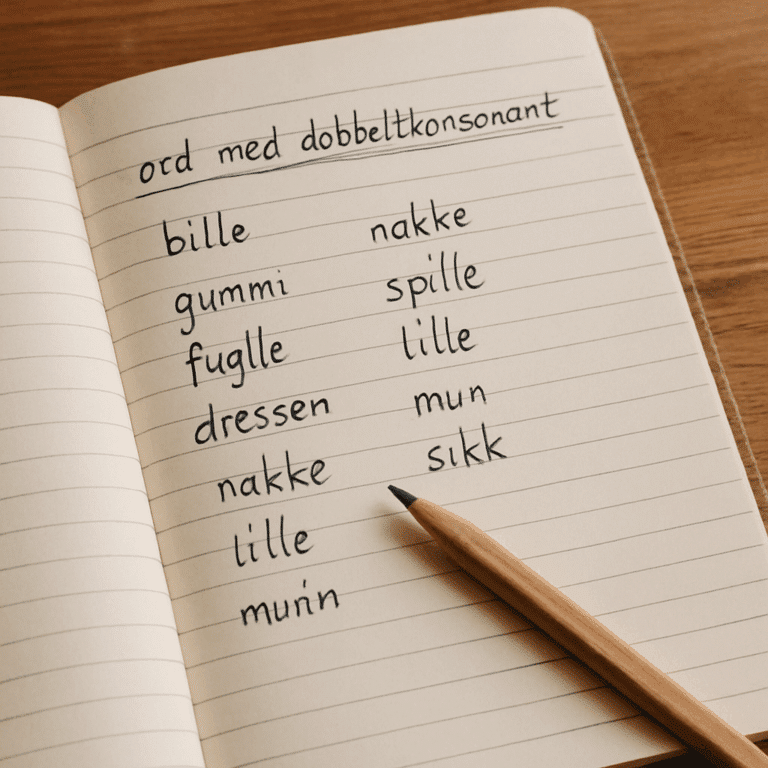 ord med dobbeltkonsonant
bille
gummi
fuglle
dressen
nakke
lille
nakke
spille
lille
mun
sikk